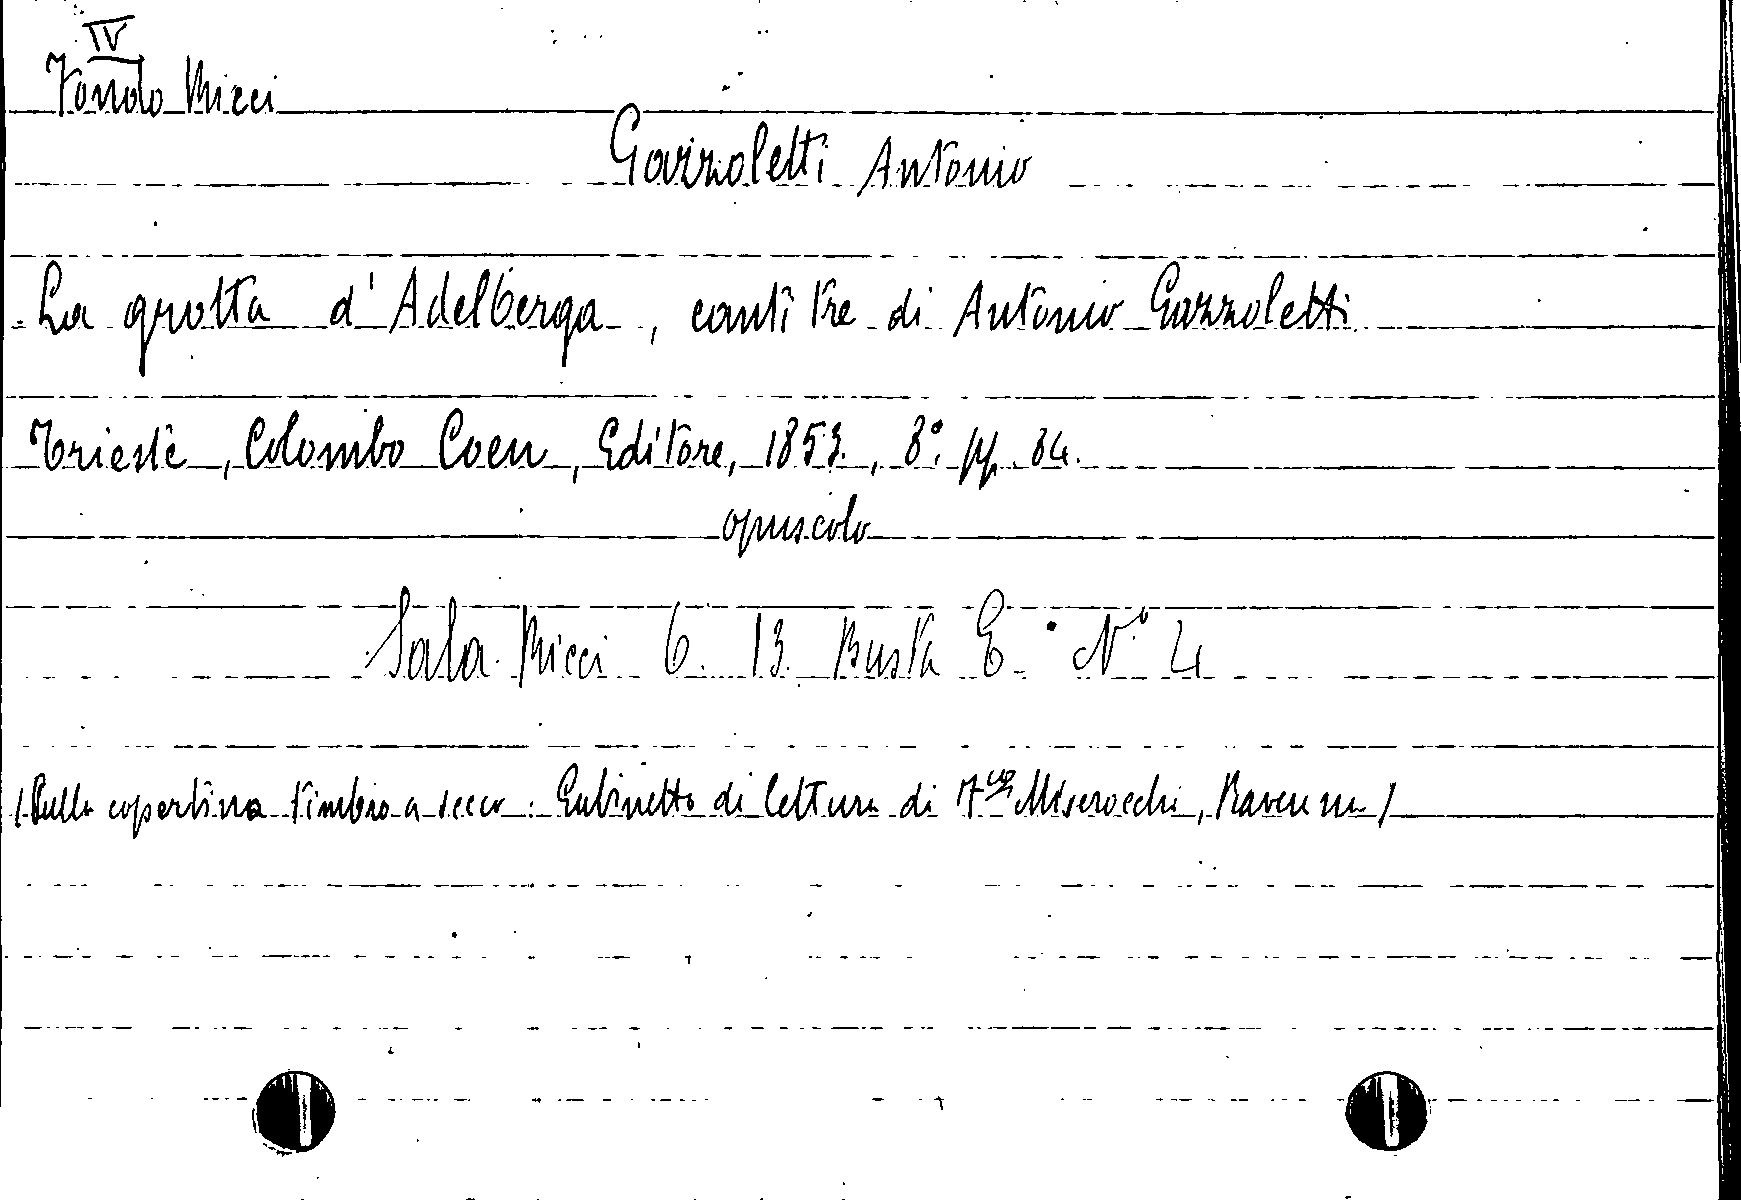 IV
Fondo Ricci
Gazzoletti Antonio
La grotta d'Adelberga, canti tre di Antonio Gazzoletti
Trieste, Colombo Coen, Editore, 1853., 8°. pp. 84.
opuscolo
Sala Ricci 6. 13. Busta E. N° 4
(Sulla copertina timbro a secco: Gabinetto di lettura di Fco Miserocchi, Ravenna)